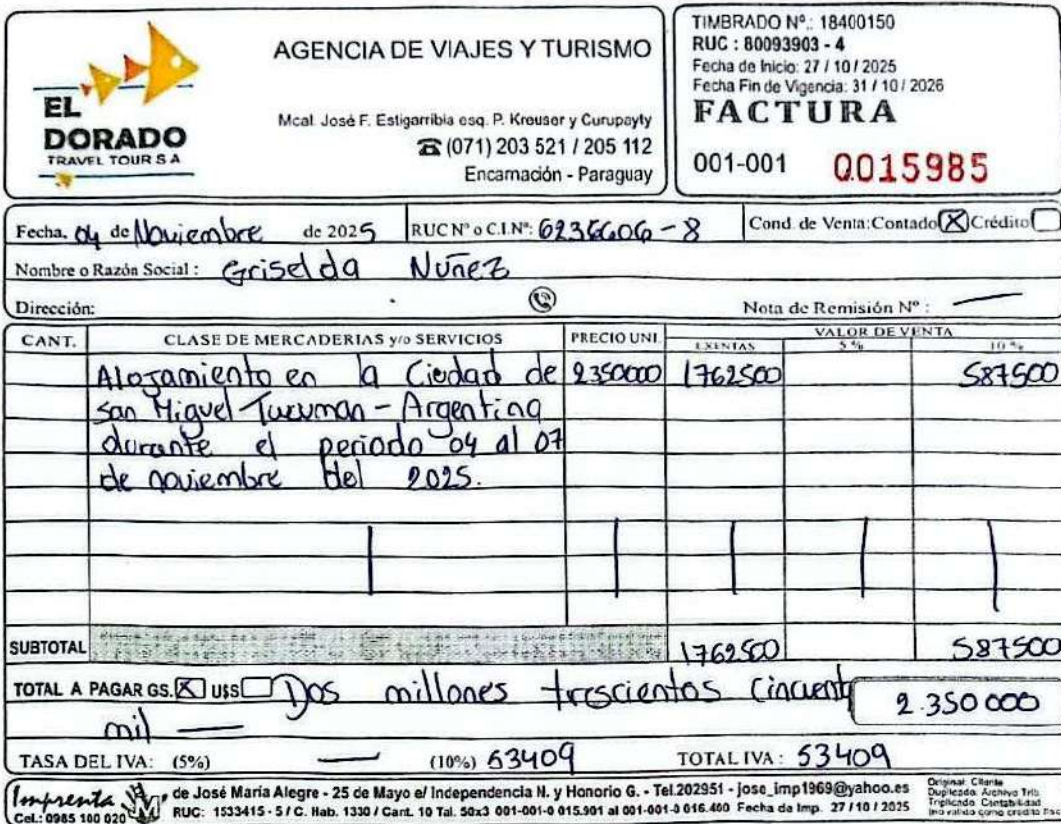 EL
DORADO
TRAVEL TOUR S A
AGENCIA DE VIAJES Y TURISMO
Mcal. José F. Estigarribia esq. P. Kreuser y Curupayty
(071) 203 521 / 205 112
Encarnación - Paraguay
TIMBRADO Nº.: 18400150
RUC : 80093903 - 4
Fecha de Inicio: 27 / 10 / 2025
Fecha Fin de Vigencia: 31 / 10 / 2026
FACTURA
001-001 0015985
Fecha. 04 de Noviembre de 2025 RUC Nº o C.I.Nº: 6236606 - 8 Cond. de Venta: Contado X Crédito
Nombre o Razón Social : Griselda Nuñez
Dirección: Nota de Remisión Nº : —
CANT. CLASE DE MERCADERIAS y/o SERVICIOS PRECIO UNI. VALOR DE VENTA
EXENTAS 5 % 10 %
Alojamiento en la Ciudad de 2350000 1762500 587500
San Miguel Tucuman - Argentina
durante el periodo 04 al 07
de noviembre del 2025.
SUBTOTAL 1762500 587500
TOTAL A PAGAR GS. X U$S Dos millones trescientos cincuenta 2.350 000
mil —
TASA DEL IVA: (5%) — (10%) 53409 TOTAL IVA : 53409
Imprenta de José María Alegre - 25 de Mayo e/ Independencia N. y Honorio G. - Tel.202951 - jose_imp1969@yahoo.es
Cel.: 0985 100 020 RUC: 1533415 - 5 / C. Hab. 1330 / Cant. 10 Tal. 50x3 001-001-0 015.901 al 001-001-0 016.400 Fecha de Imp. 27 / 10 / 2025
Original: Cliente
Duplicado: Archivo Trib.
Triplicado: Contabilidad